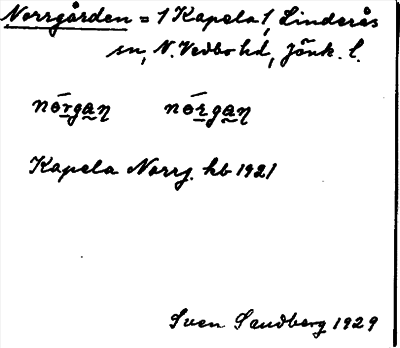 Norrgården = 1 Kapela 1, Linderås
sn, N. Vedbo hd, Jönk. l.
nórgan nórgan
Kapela Norrg. hb 1921
Sven Sandberg 1929